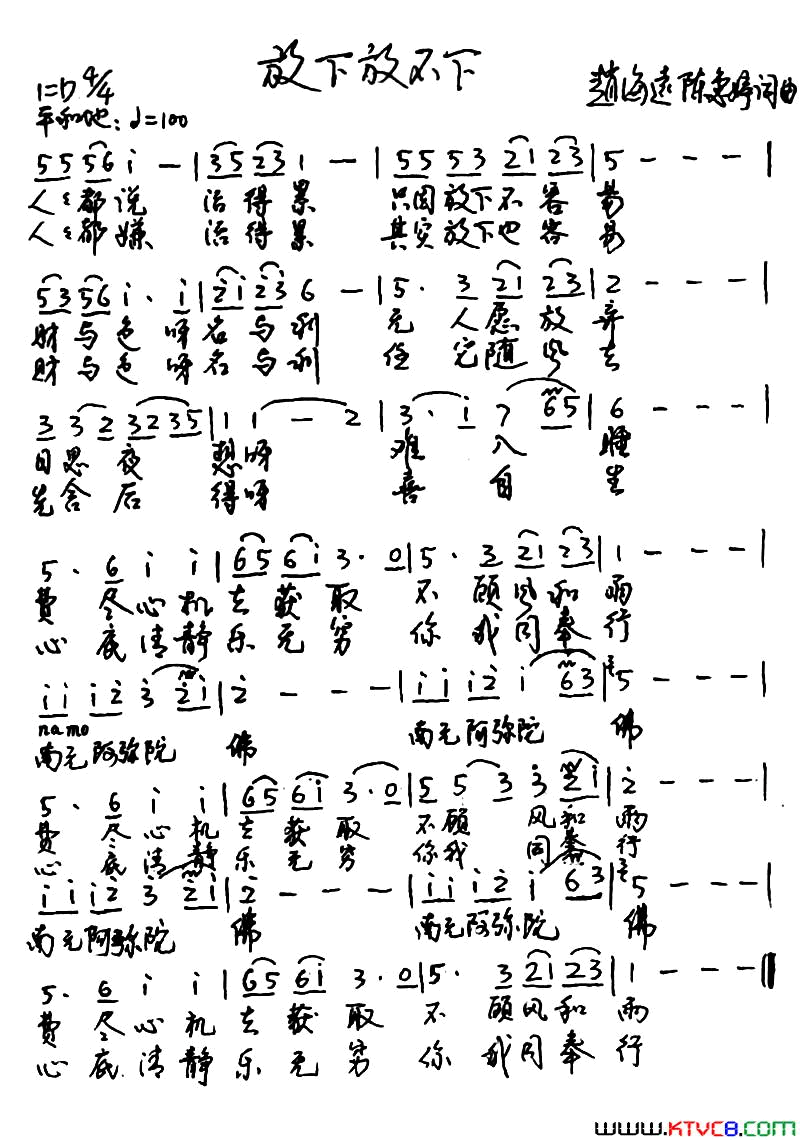 放下放不下
1=D 4/4
赵海远 陈 婷词曲
平和地: ♩=100
5 5 5 6 i — | 3 5 2 3 1 — | 5 5 5 3 2 1 2 3 | 5 - - - |
人々都说 活得累 只因放下不容易
人々都嫌 活得累 其实放下也容易
5 3 5 6 i . i | 2 i 2 3 6 — | 5 . 3 2 1 2 3 | 2 - - - |
财与色呀名与利 无人愿放弃
财与色呀名与利 任它随风去
3 3 2 3 2 3 5 | 1 1 — 2 | 3 . i 7 6 5 | 6 - - - |
日思夜 想呀 难 入 睡
先舍后 得呀 善 自 生
5 . 6 i i | 6 5 6 i 3 . 0 | 5 . 3 2 1 2 3 | 1 - - - |
费尽心机去获取 不顾风和雨
心底清静乐无穷 你我同奉行
i i i 2 3 2 i | 2 - - - | i i i 2 i 6 3 | 5 - - - |
namo
南无阿弥陀 佛 南无阿弥陀 佛
5 . 6 i i | 6 5 6 i 3 . 0 | 5 5 3 3 2 i | 2 - - - |
费尽心机去获取 不顾 风和雨
心底清静乐无穷 你我 同奉行
i i i 2 3 2 i | 2 - - - | i i i 2 i 6 3 | 5 - - - |
南无阿弥陀 佛 南无阿弥陀 佛
5 . 6 i i | 6 5 6 i 3 . 0 | 5 . 3 2 1 2 3 | 1 - - - ‖
费尽心机去获取 不顾风和雨
心底清静乐无穷 你我同奉行
www.KTVC8.com